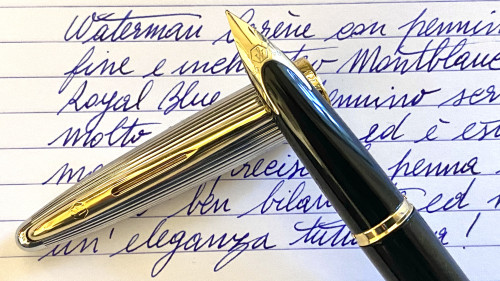 Waterman Serène con pennin
fine e inch Montblanc
Royal Blue ennino
molto ed è
penna
ben bilan ed
un'eleganza tutt !